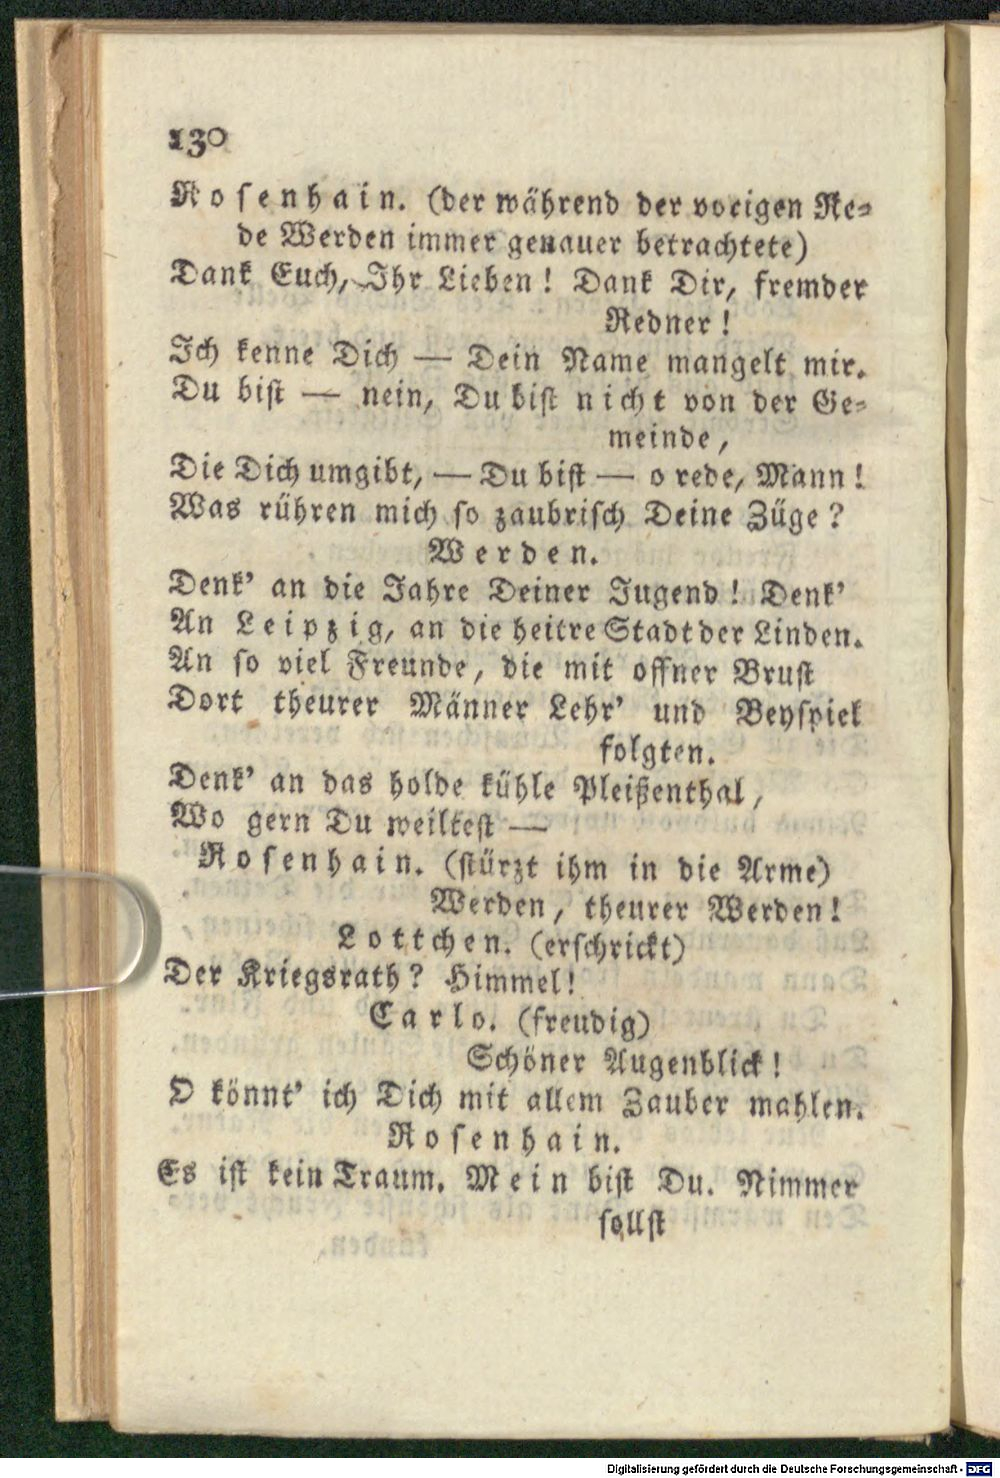 130
Rosenhain. (der während der vorigen Re-
de Werden immer genauer betrachtete)
Dank Euch, Ihr Lieben! Dank Dir, fremder
Redner!
Ich kenne Dich — Dein Name mangelt mir.
Du bist — nein, Du bist nicht von der Ge-
meinde,
Die Dich umgibt, — Du bist — o rede, Mann!
Was rühren mich so zaubrisch Deine Züge?
Werden.
Denk' an die Jahre Deiner Jugend! Denk'
An Leipzig, an die heitre Stadt der Linden.
An so viel Freunde, die mit offner Brust
Dort theurer Männer Lehr' und Beyspiel
folgten.
Denk' an das holde kühle Pleißenthal,
Wo gern Du weiltest —
Rosenhain. (stürzt ihm in die Arme)
Werden, theurer Werden!
Lottchen. (erschrickt)
Der Kriegsrath? Himmel!
Carlo. (freudig)
Schöner Augenblick!
O könnt' ich Dich mit allem Zauber mahlen.
Rosenhain.
Es ist kein Traum. Mein bist Du. Nimmer
sollst
Digitalisierung gefördert durch die Deutsche Forschungsgemeinschaft - DFG